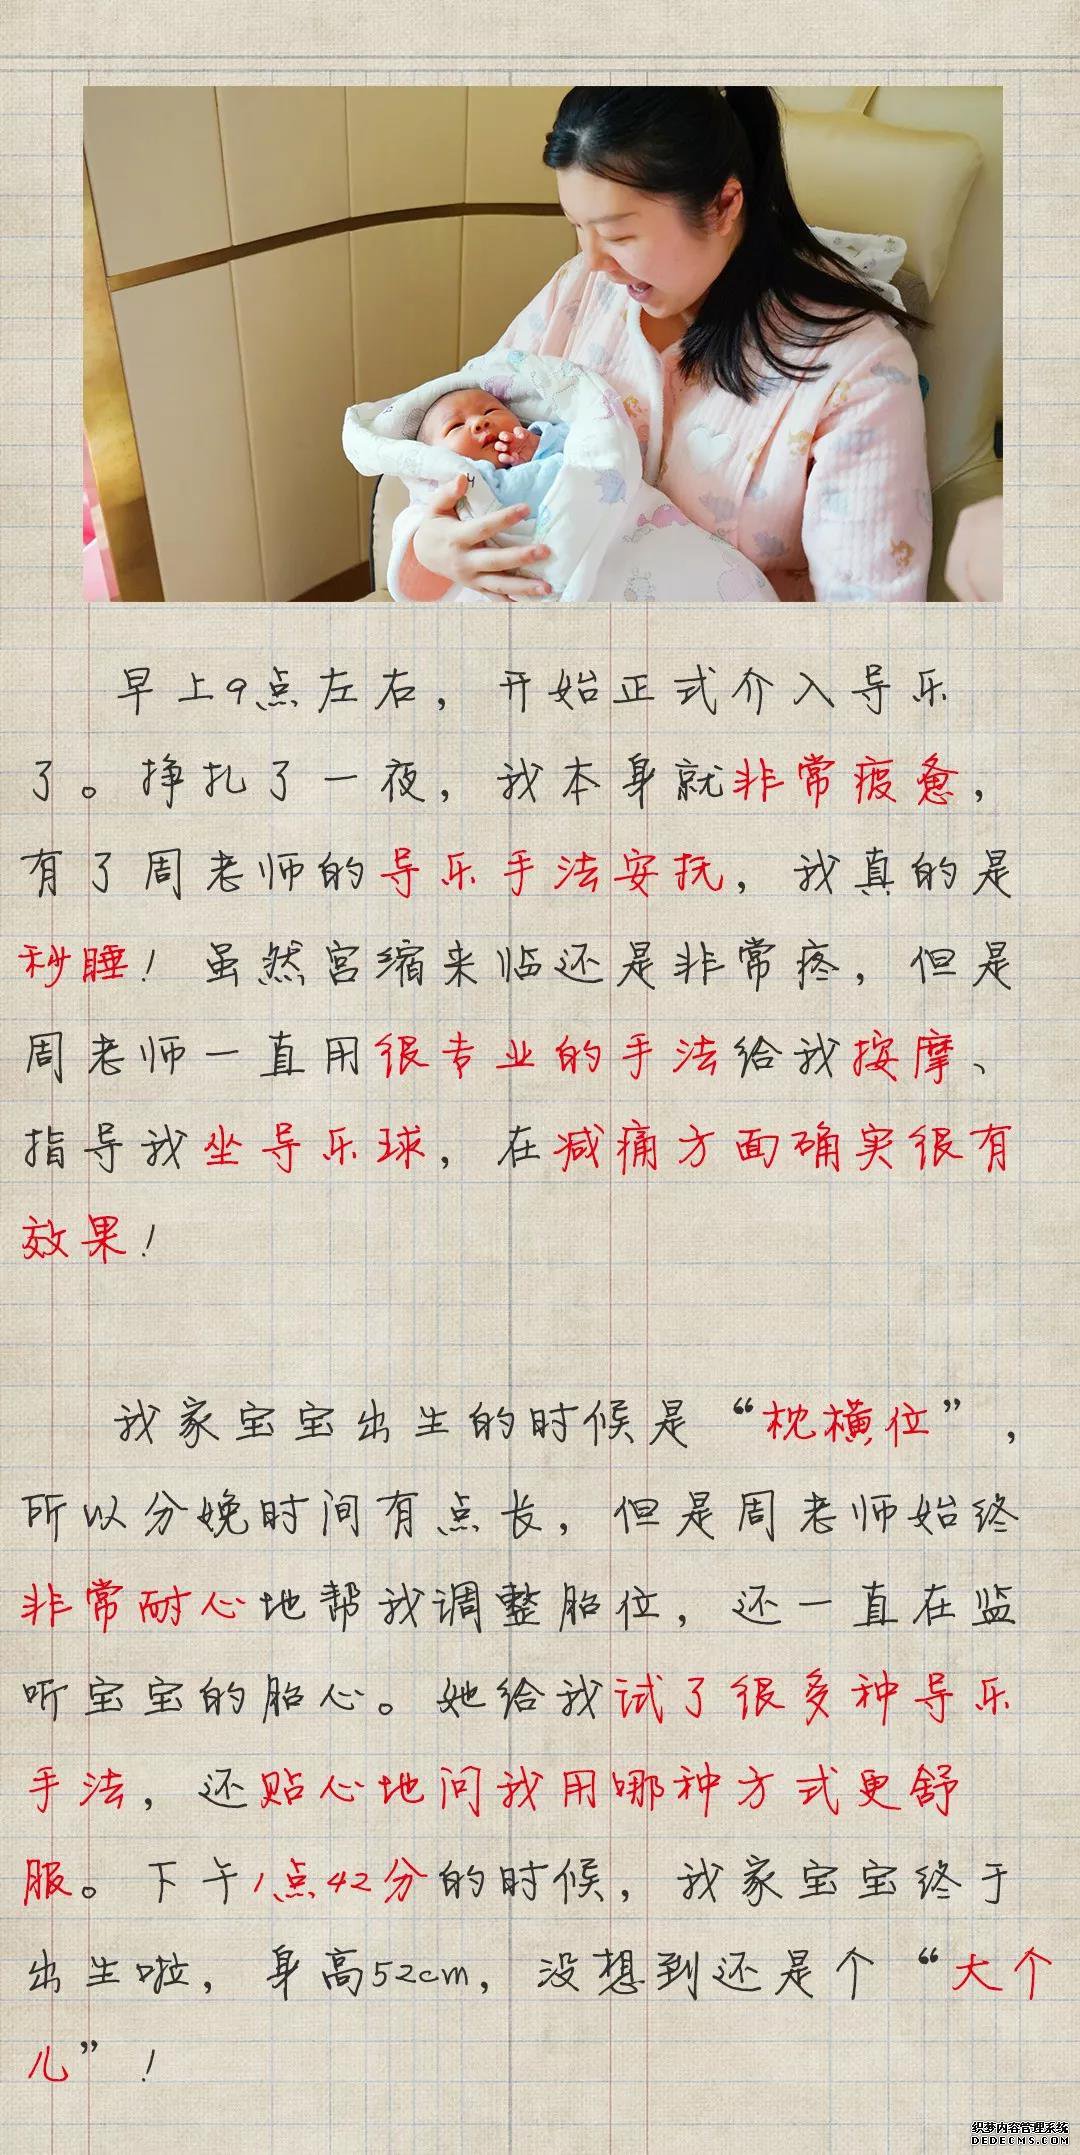 早上9点左右，开始正式介入导乐
了。挣扎了一夜，我本身就非常疲惫，
有了周老师的导乐手法安抚，我真的是
秒睡！虽然宫缩来临还是非常疼，但是
周老师一直用很专业的手法给我按摩、
指导我坐导乐球，在减痛方面确实很有
效果！
我家宝宝出生的时候是“枕横位”，
所以分娩时间有点长，但是周老师始终
非常耐心地帮我调整胎位，还一直在监
听宝宝的胎心。她给我试了很多种导乐
手法，还贴心地问我用哪种方式更舒
服。下午1点42分的时候，我家宝宝终于
出生啦，身高52cm，没想到还是个“大个
儿”！
织梦内容管理系统
DEDECMS.COM